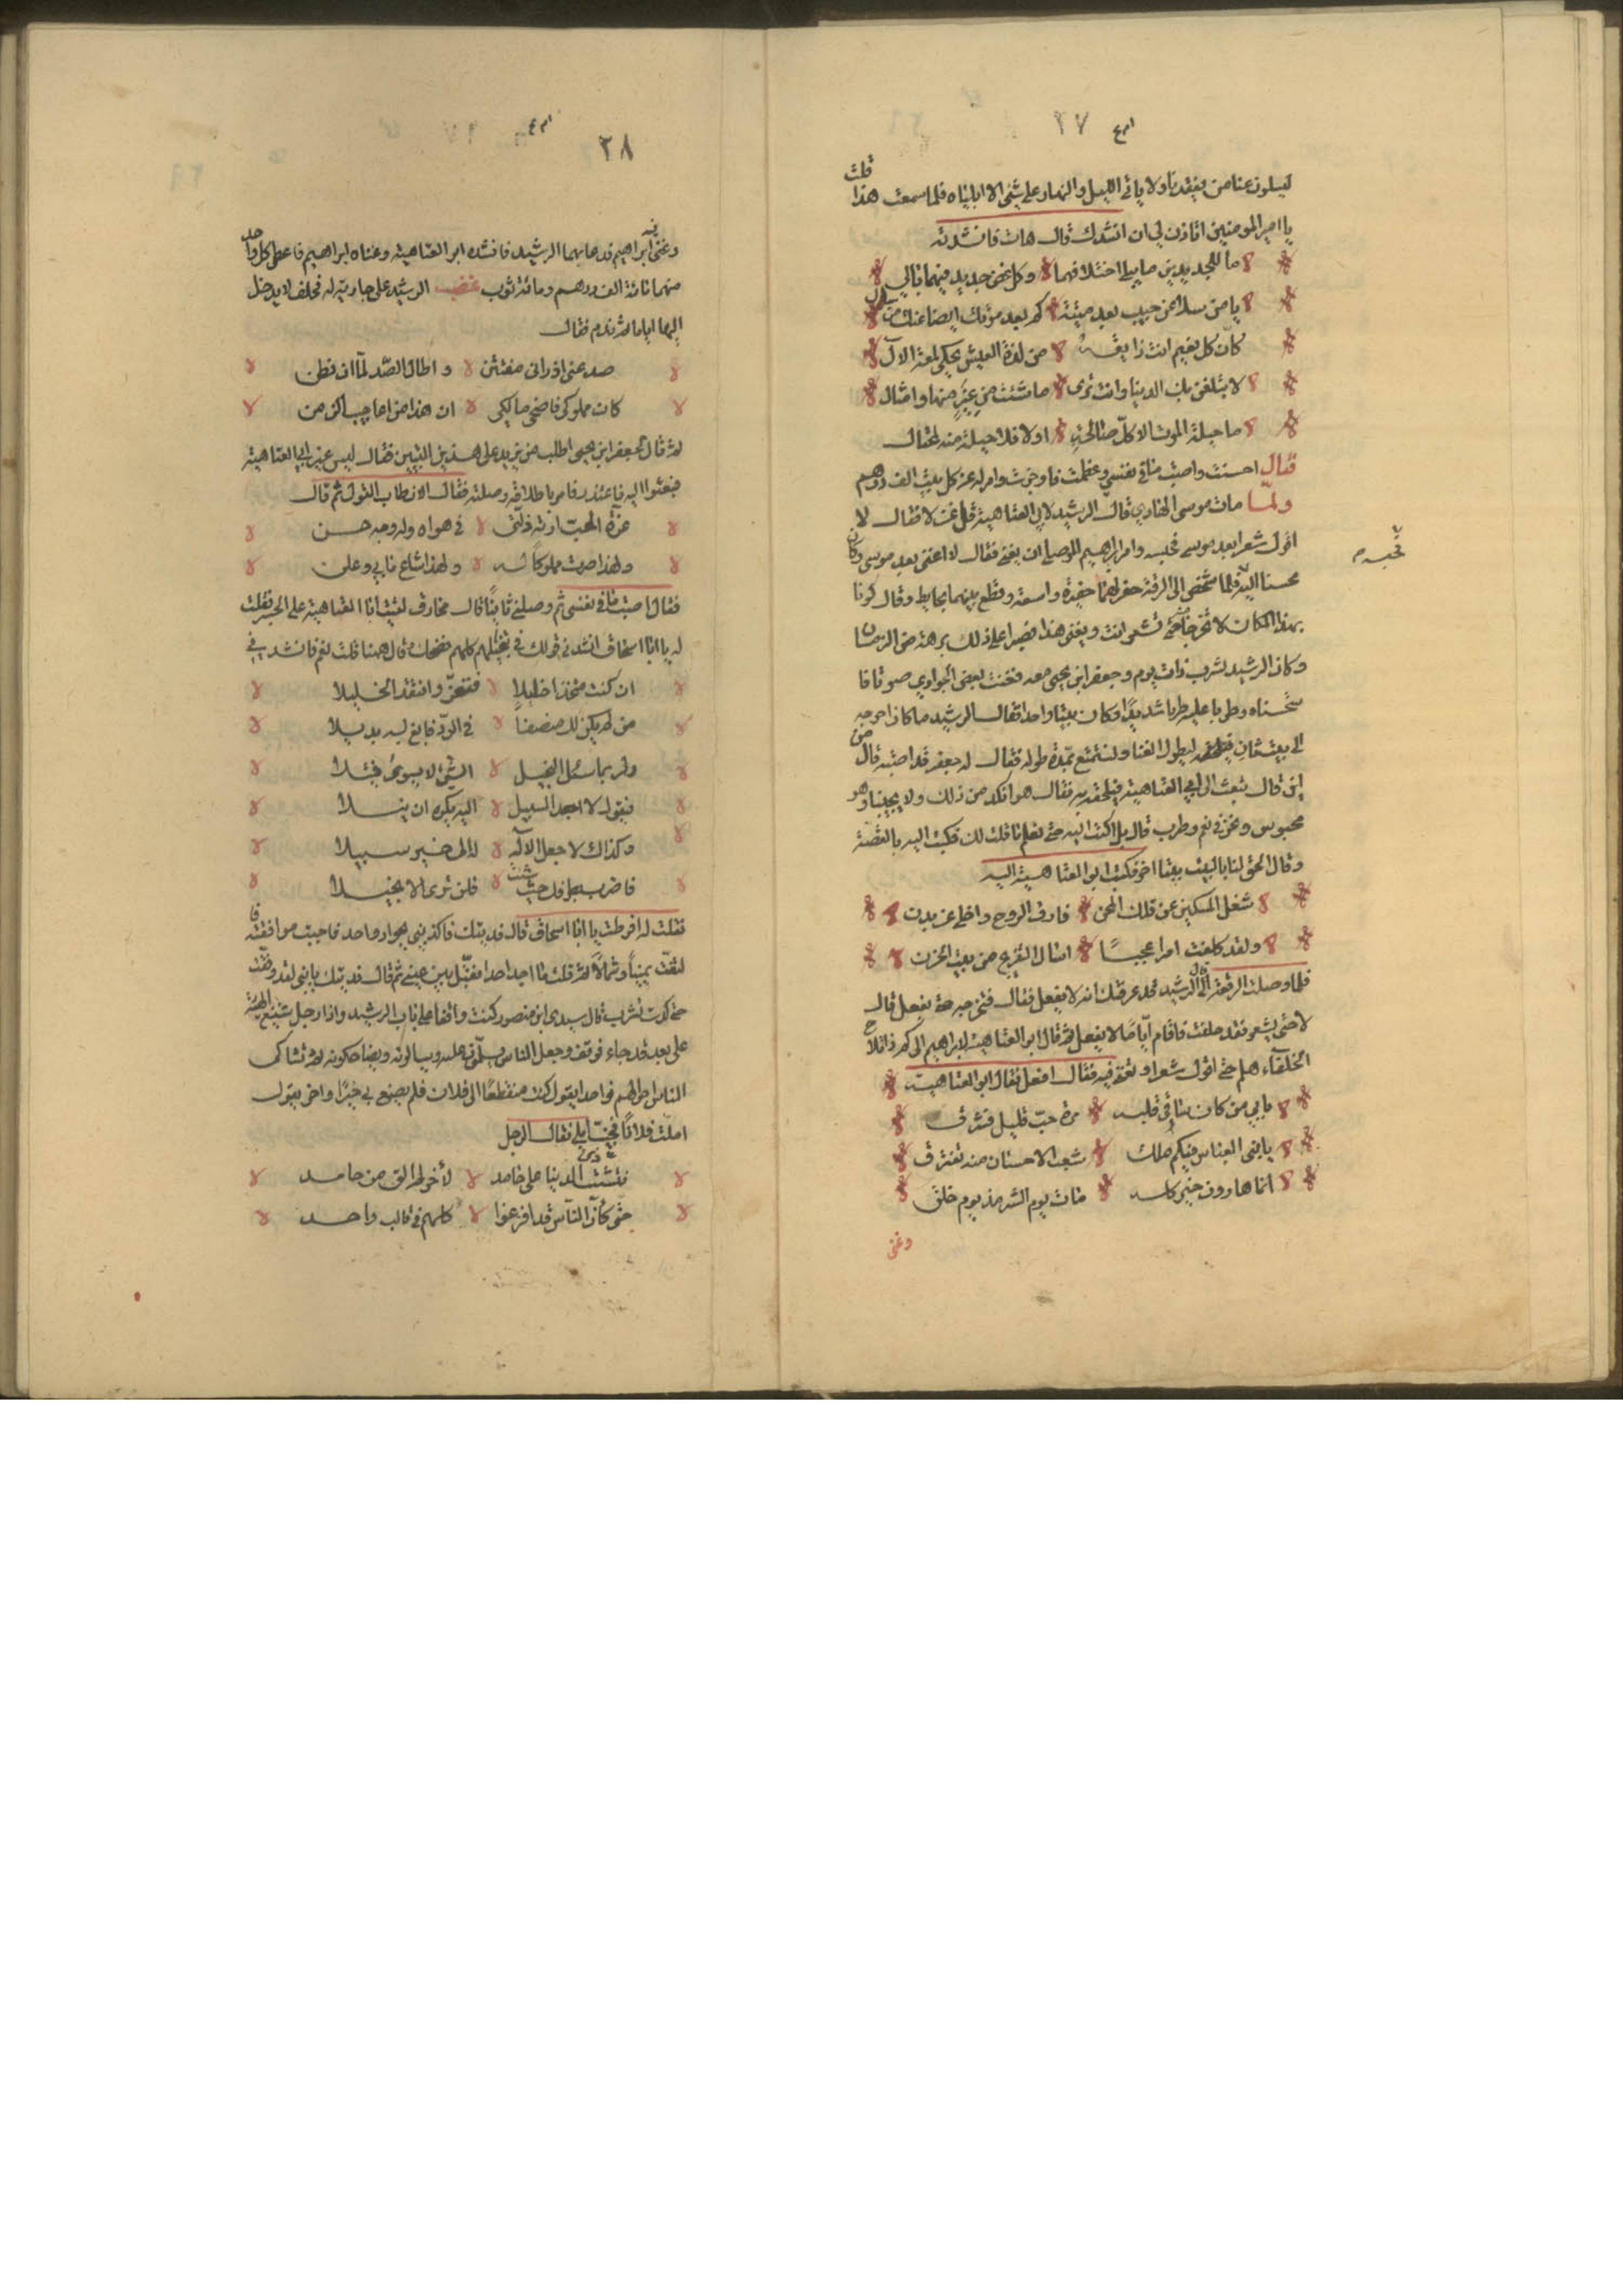 ٢٧
ليسلون عنا من يفقدنا ولا ياتى الليل والنهار على شئ الا ابلياه فلما سمعت هذا قلت
يا امير المومنين اتاذن لى ان انشدك قال هات فانشدته
ما للجديدين ما يبلى اختلافهما وكل غض جديد فيهما بالي
يا من سلا عن حبيب بعد ميتته كم بعد موتك ايضا عنك من سال
كان كل نعيم انت ذايقه من لذة العيش يحكى لمعة الال
لا تلعبن بك الدنيا وانت ترى ما شئت من عبر منها وامثال
ما حيلة الموت الا كل صالحة او لا فلا حيلة منه لمحتال
فقال احسنت واصبت ما فى نفسى وعظت فاوجزت وامر له عن كل بيت الف درهم
ولما مات موسى الهادي قال الرشيد لابى العتاهية قل غزلا فقال لا
اقول شعرا بعد موسى فحبسه وامر ابراهيم الموصلى ان يغنى فقال لا اغنى بعد موسى وكان
محسنا اليه فلما شخص الى الرقة حفر لهما حفرة واسعة وقطع بينهما بحايط وقال كونا
بهذا المكان لا تخرجا حتى تشعر انت ويغنى هذا فصبرا على ذلك برهة من الزمان
وكان الرشيد يشرب ذات يوم وجعفر ابن يحيى معه فغنت بعض الجوارى صوتا فا
ستحسناه وطربا عليه طربا شديدا وكان بيتا واحدا فقال الرشيد ما كان احوجه
الى بيت ثان ليطول الغنا ونستمتع مدة طوله فقال له جعفر قد اصبته قال من
اين قال تبعث الى ابى العتاهية فيلحقه به فقال هو انكد من ذلك ولا يجيبنا وهو
محبوس ونحن فى نعم وطرب قال بلى اكتب اليه حتى تعلم ما قلت لك فكتب اليه بالقصة
وقال الحق لنا بالبيت بيتا اخر فكتب ابو العتاهية اليه
شغل المسكين عن تلك المحن فارق الروح واخلى عن بدن
ولقد كلفت امرا عجبا اسال التفريج من بيت الحزن
فلما وصلت الرقعة الى الرشيد قال قد عرفتك انه لا يفعل فقال فتخرجه حتى يفعل قال
لا حتى يشعر فقد حلفت فاقام اياما لا يفعل ثم قال ابو العتاهية لابراهيم الى كم ذا نلاج
الخلفاء هلم حتى اقول شعرا وتغنى فيه فقال افعل فقال ابو العتاهية
بابي من كان فى قلبه مرة حب قليل فسرق
يا بنى العباس فيكم ملك شعب الاحسان منه تفترق
انما هارون خير كله مات يوم الشر مذ يوم خلق
وغنى
٢٨
وغنى فيه ابراهيم فدعا بهما الرشيد فانشده ابو العتاهية وغناه ابراهيم فاعطى كل واحد
منهما مائة الف درهم ومائة ثوب غضب الرشيد على جارية له فحلف لا يدخل
اليها اياما ثم ندم فقال
صد عنى اذ رانى مفتتن واطال الصد لما ان فطن
كان مملوكى فاضحى مالكى ان هذا من اعاجيب الزمن
ثم قال لجعفر ابن يحيى اطلب من يزيد على هذين البيتين فقال ليس غير ابى العتاهية
فبعثوا اليه فاعتذر فامر باطلاقه وصلته فقال الان طاب القول ثم قال
عزة المحب ارته ذلتى فى هواه وله وجه حسن
ولهذا صرت مملوكا له ولهذا شاع ما بي وعلن
فقال اصبت ما فى نفسى ثم وصلنى ثانيا قال مخارق لقيت ابا العتاهية على الجسر فقلت
له يا ابا اسحاق انشدنى قولك فى تبخيلهم كلهم فضحك وقال ههنا قلت نعم فانشدنى
ان كنت متخذا خليلا فتعز وانتقد الخليلا
من لم يكن لك منصفا فى الود فابغ به بديلا
ولربما سئل البخيل الشئ لا يسوى فتيلا
فيقول لا اجد السبيل اليه يكره ان ينيلا
وكذاك لا جعل الاله له الى خير سبيلا
فاضرب بطرفك حيث شئت فلن ترى الا بخيلا
فقلت له افرطت يا ابا اسحاق قال فديتك فاكذبنى بجواد واحد فاحببت موافقته فا
لتفت يمينا وشمالا ثم قلت ما اجد احدا فقبل بين عينى ثم قال فديتك يا بنى لقد رفقت
حتى كدت تشرب قال سيدى ابن منصور كنت واقفا على باب الرشيد واذا رجل شنيع الهيئة
على بعد قد جاء فوقف وجعل الناس يسلمون عليه ويسالونه ويضاحكونه ثم تشاكى
الناس احوالهم فواحد يقول كنت منقطعا الى فلان فلم يصنع بي خيرا واخر يقول
املت فلانا فخيب املى فقال الرجل
فتشت ذى الدنيا على حامد لاخر لم الق من حامد
حتى كان الناس قد افرغوا كلهم فى قالب واحد